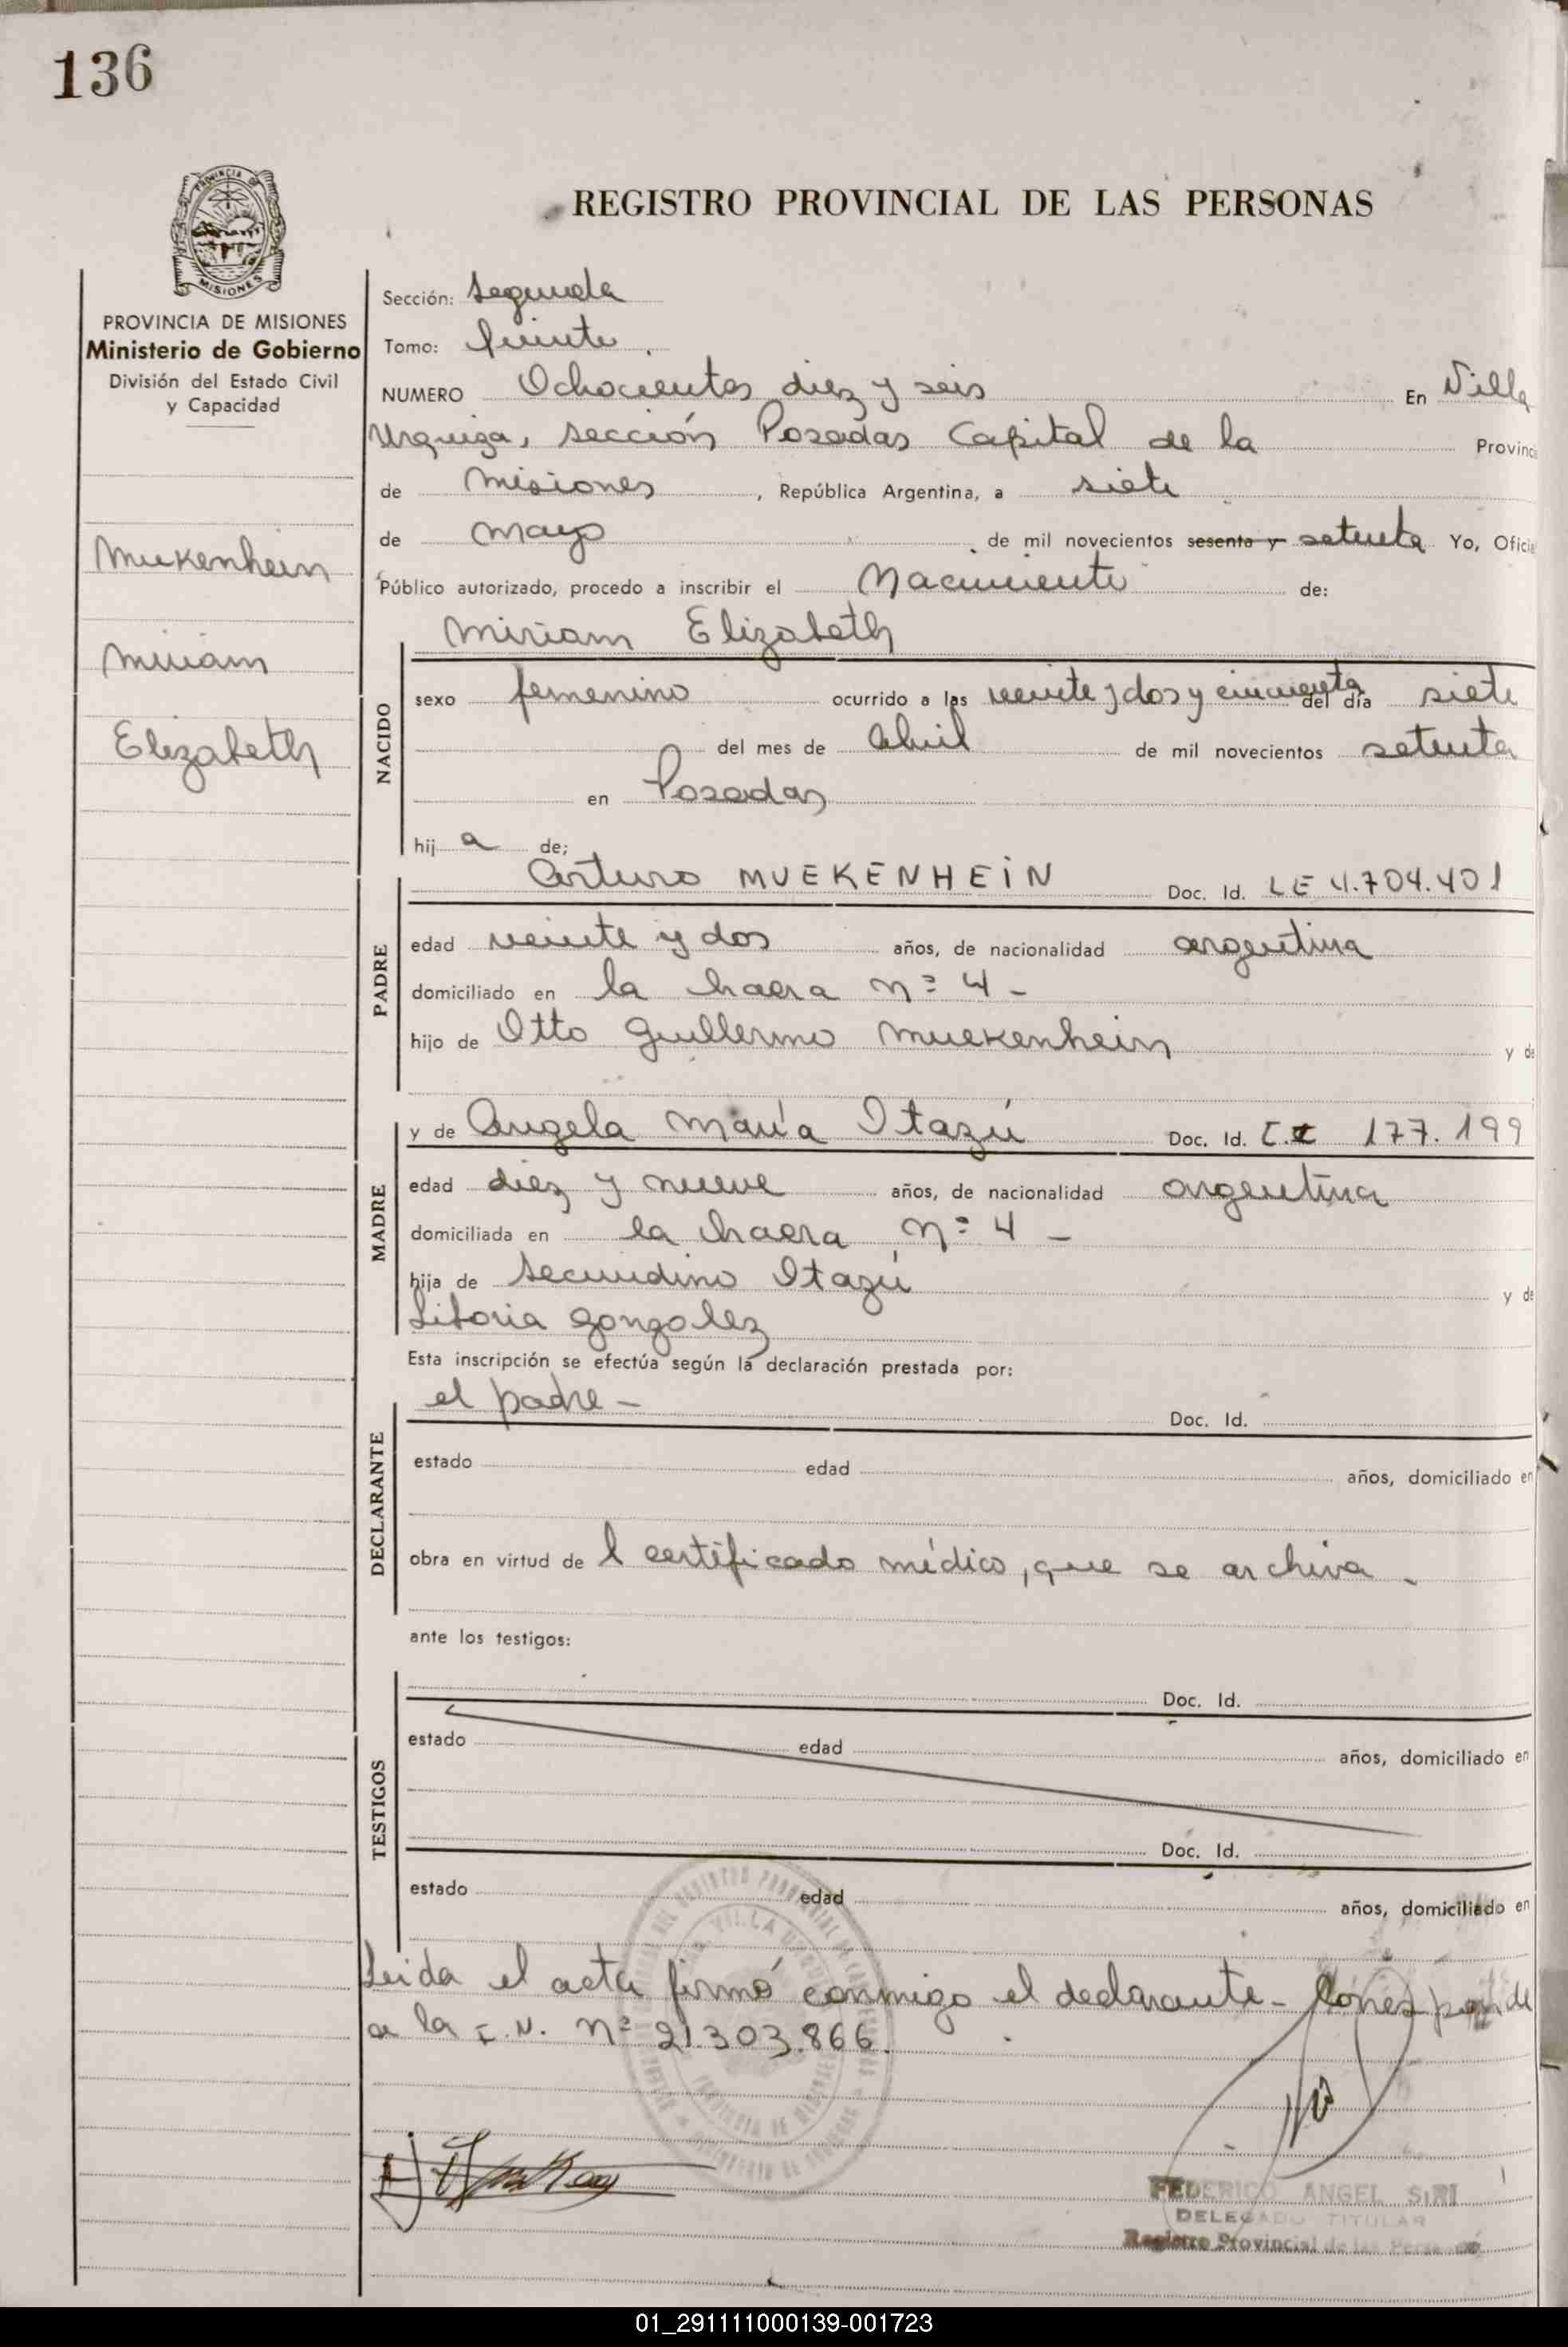 136
REGISTRO PROVINCIAL DE LAS PERSONAS
PROVINCIA DE
MISIONES
PROVINCIA DE MISIONES
Ministerio de Gobierno
División del Estado Civil
y Capacidad
Muekenhein
Miriam
Elizabeth
Sección: Segunda
Tomo: Quinto
NUMERO Ochocientos diez y seis En Villa
Urquiza, sección Posadas Capital de la Provinc
de Misiones, República Argentina, a siete
de Mayo de mil novecientos sesenta y setenta Yo, Oficia
Público autorizado, procedo a inscribir el Nacimiento de:
Miriam Elizabeth
NACIDO
sexo femenino ocurrido a las veinte y dos y cincuenta del día siete
del mes de Abril de mil novecientos setenta
en Posadas
hij a de;
PADRE
Arturo MUEKENHEIN Doc. Id. LE 4.704.401
edad veinte y dos años, de nacionalidad argentina
domiciliado en la chacra nº 4 -
hijo de Otto Guillermo Muekenhein y de
MADRE
y de Angela María Itazú Doc. Id. 177.199
edad diez y nueve años, de nacionalidad argentina
domiciliada en la chacra nº 4 -
hija de Secundino Itazú y de
Litoria Gonzalez
Esta inscripción se efectúa según la declaración prestada por:
DECLARANTE
el padre - Doc. Id.
estado edad años, domiciliado en
obra en virtud de l certificado médico, que se archiva -
ante los testigos:
TESTIGOS
Doc. Id.
estado edad años, domiciliado en
Doc. Id.
estado edad años, domiciliado en
Leida el acta firmó conmigo el declarante - Corresponde
a la I.N. nº 21.303.866.
FEDERICO ANGEL SIRI
DELEGADO TITULAR
Registro Provincial de las Personas
01_291111000139-001723